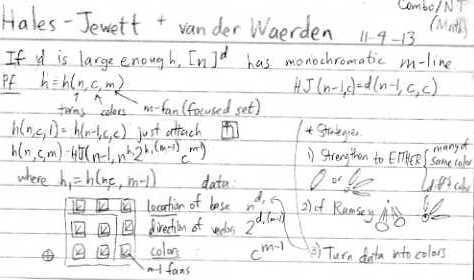 Combo/NT
(Math)
Hales-Jewett + van der Waerden 11-9-13
If d is large enough, [n]^d has monochromatic m-line
Pf h = h(n, c, m) HJ(n-1,c)=d(n-1, c, c)
terms colors m-fan (focused set)
h(n,c,1) = h(n-1,c,c) just attach
h(n,c,m) HJ(n-1, n^h 2^h,(m-1) c^m-1)
where h₁ = h(n,c, m-1) data:
location of base n^d,
direction of vectors 2^d,(m-1)
colors c^m-1
m-1 fans
* Strategies
1) Strengthen to EITHER
or
many of same color
diff color
2) cf Ramsey
3) Turn data into colors